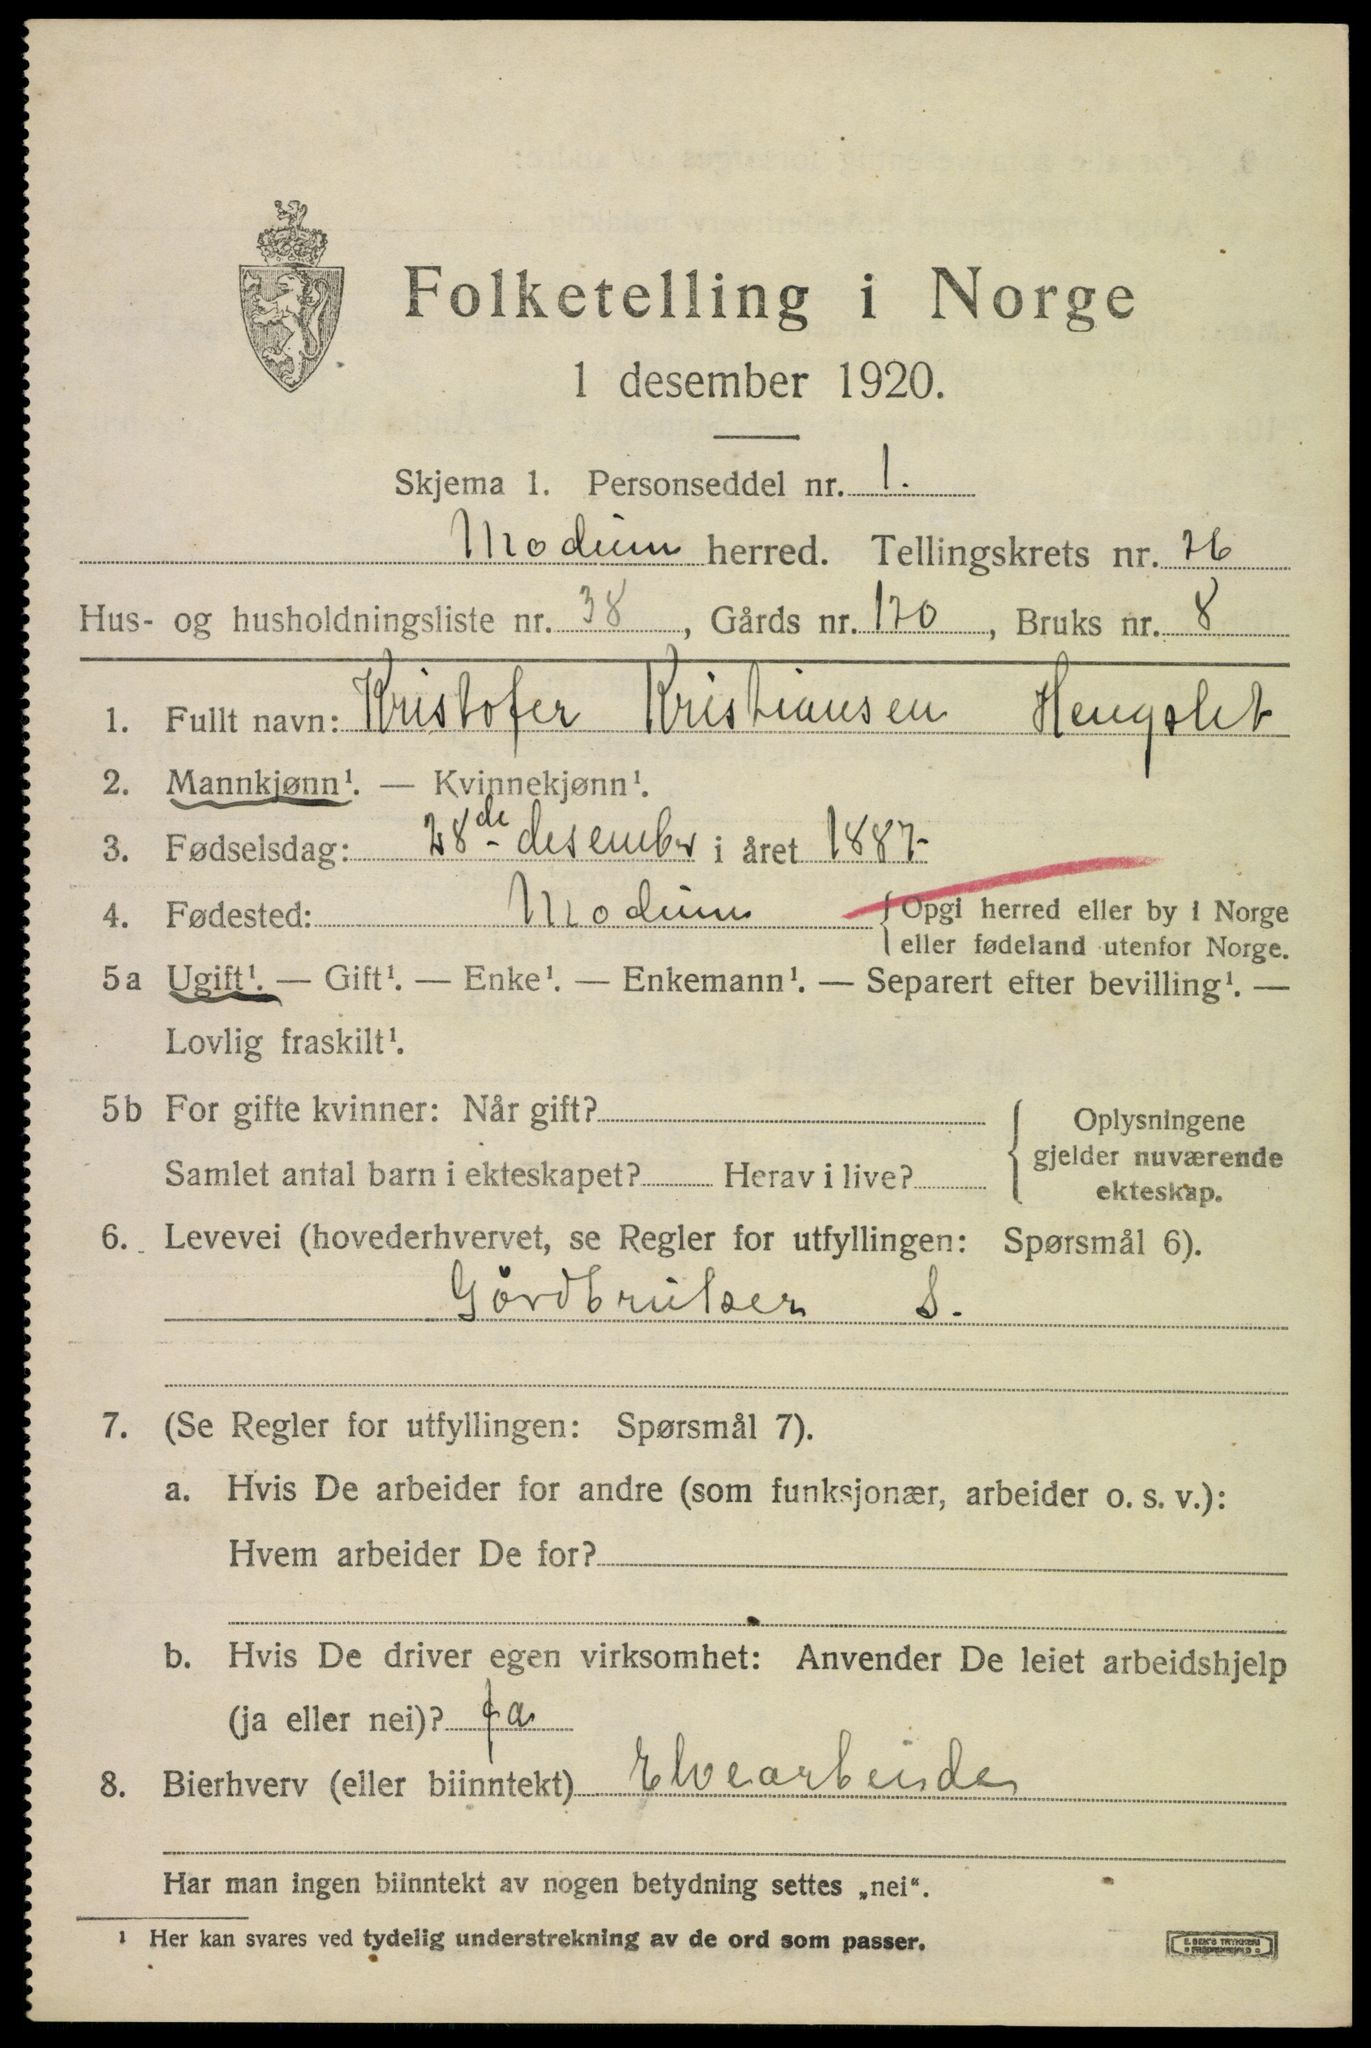 Folketelling i Norge
1 desember 1920.
Skjema 1. Personseddel nr. 1.
Modum herred. Tellingskrets nr. 26
Hus- og husholdningsliste nr. 38, Gårds nr. 120, Bruks nr. 8
1. Fullt navn: Kristofer Kristiansen Hengslet
2. Mannkjønn¹. — Kvinnekjønn¹.
3. Fødselsdag: 28de desember i året 1887
4. Fødested: Modum {Opgi herred eller by i Norge
eller fødeland utenfor Norge.
5a Ugift¹. — Gift¹. — Enke¹. — Enkemann¹. — Separert efter bevilling¹. —
Lovlig fraskilt¹.
5b For gifte kvinner: Når gift? Oplysningene
gjelder nuværende
Samlet antal barn i ekteskapet? Herav i live?
ekteskap.
6. Levevei (hovederhvervet, se Regler for utfyllingen: Spørsmål 6).
Gårdbruker S.
7. (Se Regler for utfyllingen: Spørsmål 7).
a. Hvis De arbeider for andre (som funksjonær, arbeider o. s. v.):
Hvem arbeider De for?
b. Hvis De driver egen virksomhet: Anvender De leiet arbeidshjelp
(ja eller nei)? ja
8. Bierhverv (eller biinntekt) Elvearbeider
Har man ingen biinntekt av nogen betydning settes „nei“.
¹ Her kan svares ved tydelig understrekning av de ord som passer.